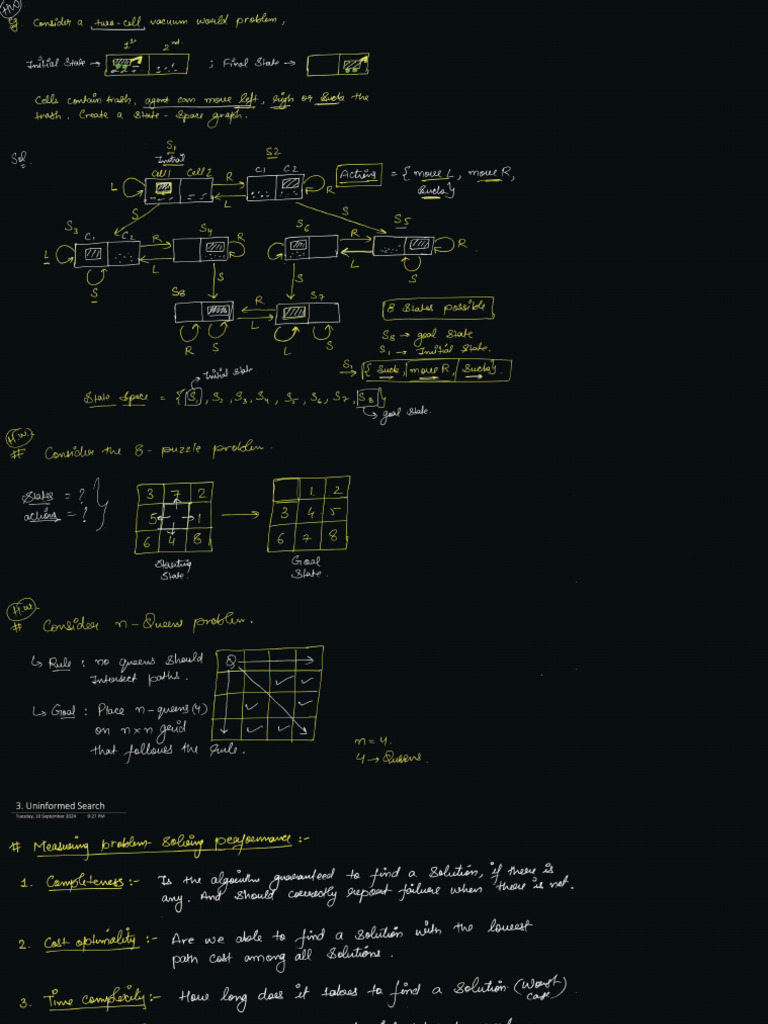 H.W
Q. Consider a two-cell vacuum world problem,
1st 2nd
Initial State → ; Final State →
Cells contain trash, agent can move left, righ or Sucks the
trash. Create a State-Space graph.
Sol.
S1 S2
Initial
Cell1 Cell2 R C1 C2 Actions = { move L, move R,
L L R Sucks}
S S
S3 C1 C2 R S4 S6 R S5
L L R L L R
S S S S
S8 R S7
L
R S L S
8 States possible
S8 → goal State
S1 → Initial State.
S1 → { Suck, move R, Sucks}.
→ Initial State
State Space = { S1, S2, S3, S4, S5, S6, S7, S8 }
→ goal State.
H.W.
# Consider the 8-puzzle problem.
States = ?
actions = ?
3 7 2
5 1
6 4 8
Starting
State.
1 2
3 4 5
6 7 8
Goal
State.
H.W.
# Consider n-Queens problem.
↳ Rule : no queens should
Intersect paths.
↳ Goal : Place n-queens (4)
on n×n grid
that follows the rule.
Q
✓ ✓
✓ ✓
✓ ✓
n = 4.
4 → Queens.
3. Uninformed Search
Tuesday, 10 September 2024 9:27 PM
# Measuring problem-Solving performance :-
1. Completeness :- Is the algorithm guaranteed to find a Solution, if there is
any. And Should correctly report failure when there is not.
2. Cost optimality :- Are we able to find a Solution with the lowest
path cost among all Solutions.
3. Time complexity :- How long does it takes to find a Solution (Worst
case)